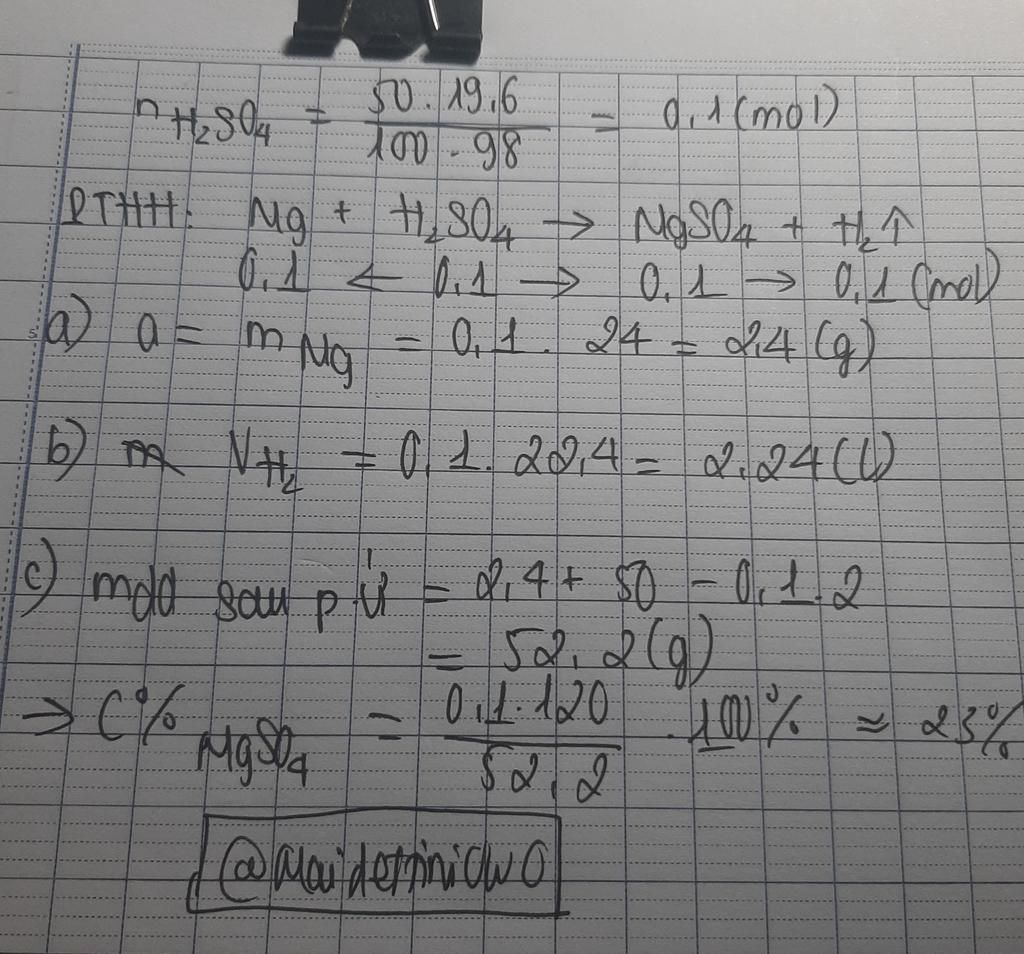 nH₂SO₄ = 50.19,6 / 100.98 = 0,1 (mol)
PTHH: Mg + H₂SO₄ → MgSO₄ + H₂↑
0,1 ← 0,1 → 0,1 → 0,1 (mol)
a) a = mMg = 0,1. 24 = 2,4 (g)
b) VH₂ = 0,1. 22,4 = 2,24 (l)
c) mdd sau p.ứ = 2,4 + 50 - 0,1.2
= 52,2 (g)
⇒ C% MgSO₄ = 0,1.120 / 52,2 . 100% ≈ 23%